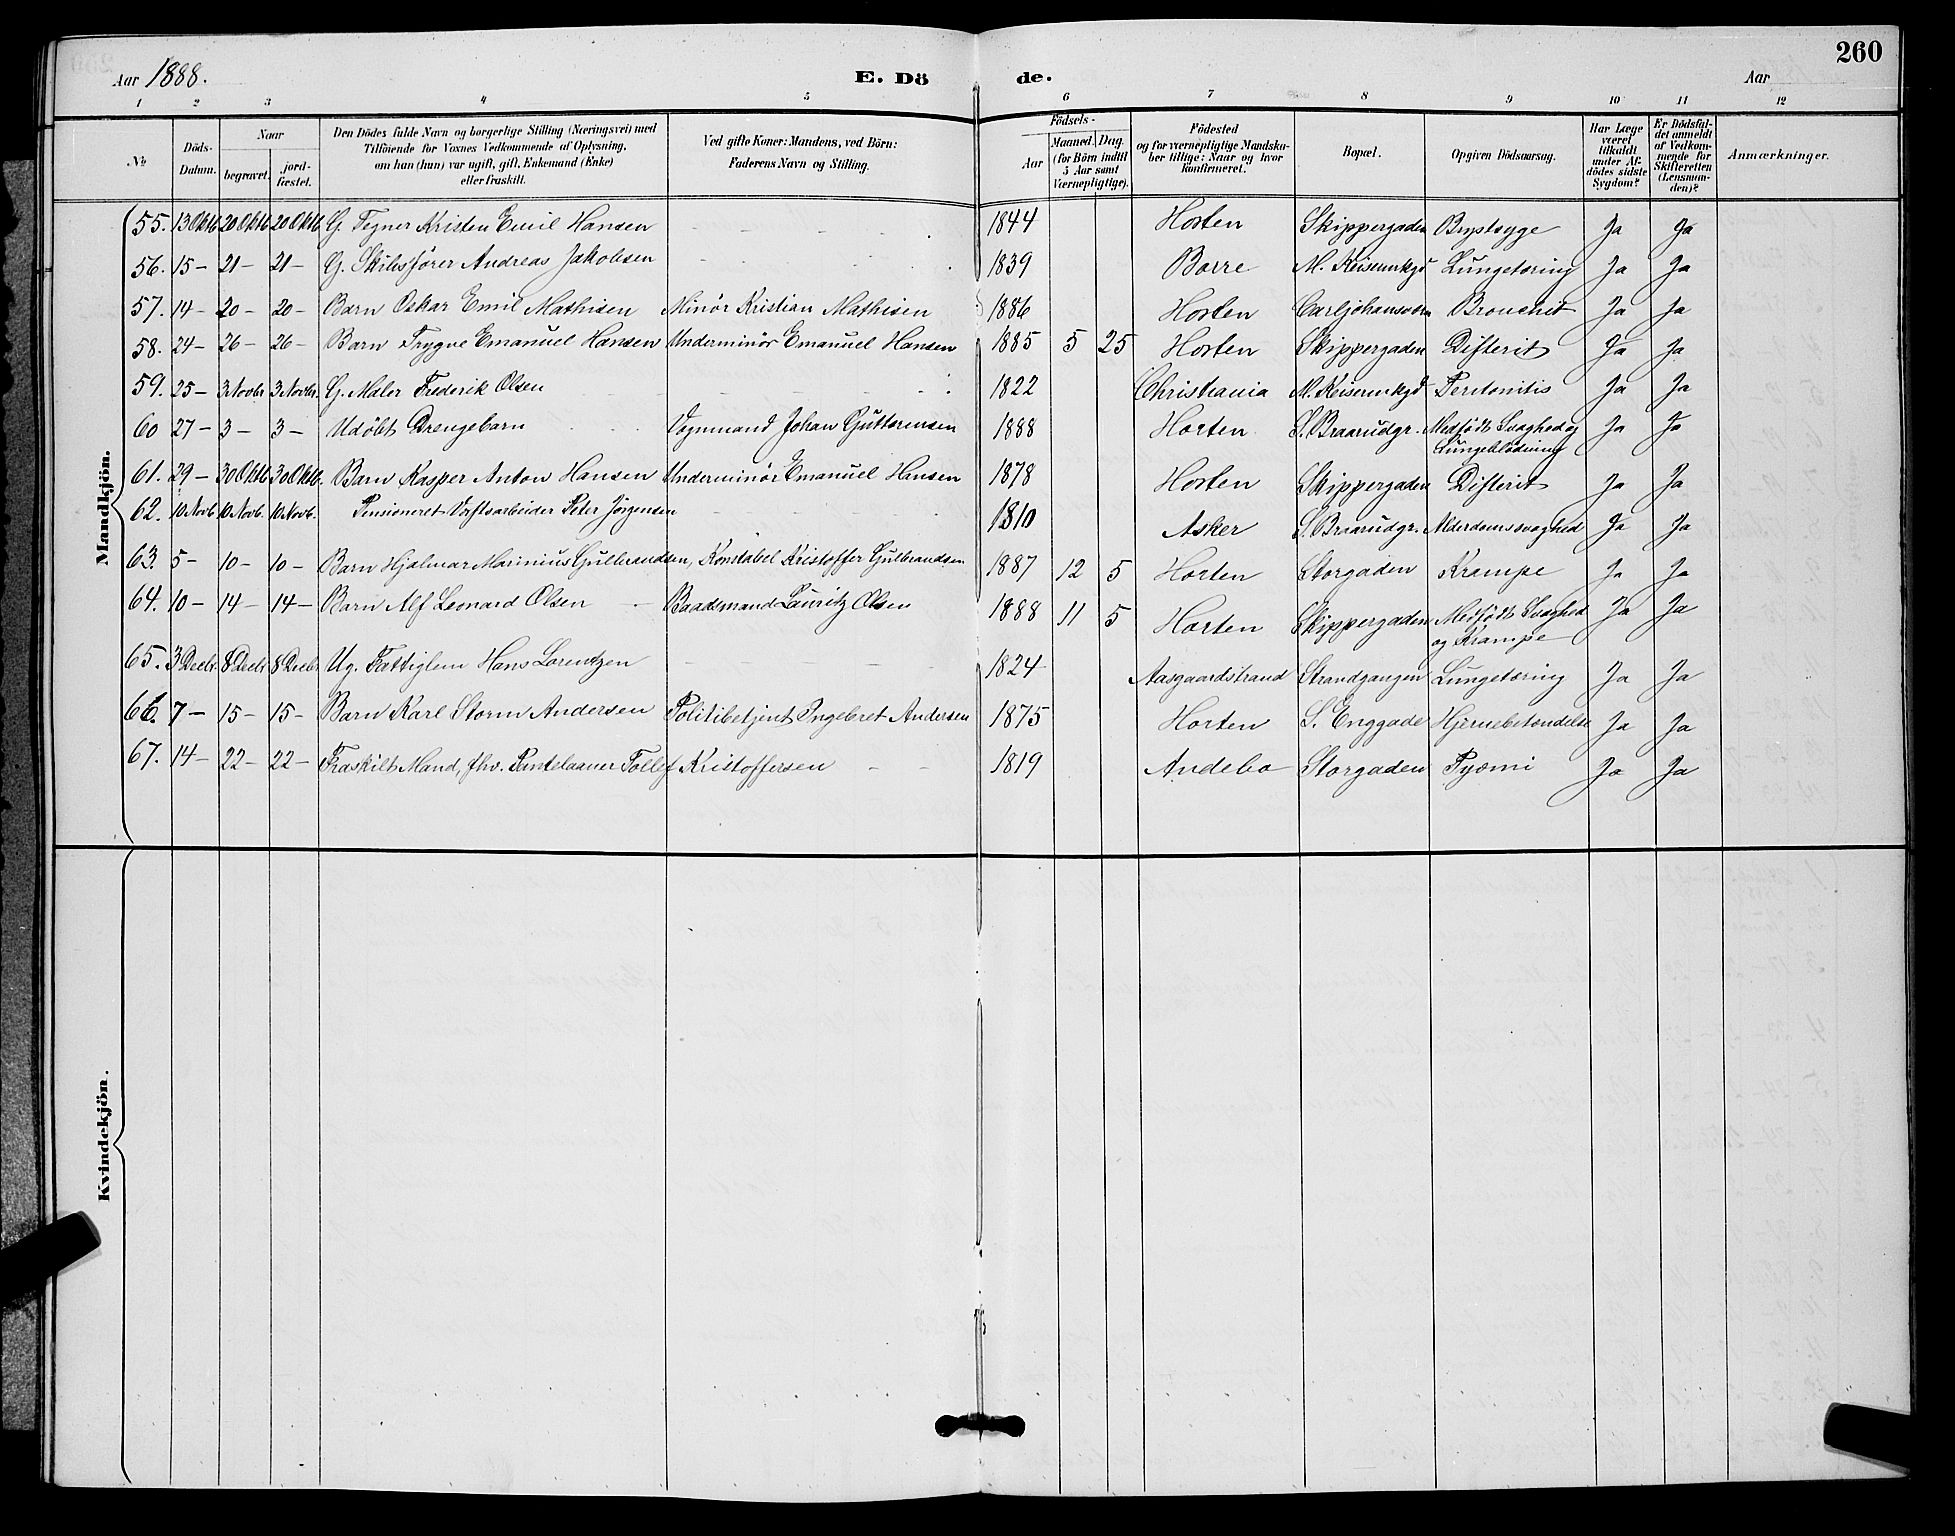 Aar 1888. E. Dö de. Aar 260
1 2 3 4 5 6 7 8 9 10 11 12
No
Döds-Datum.
Naar
begravet.
jord-fæstet.
Den Dödes fulde Navn og borgerlige Stilling (Næringsvei) med
Tilföiende for Voxnes Vedkommende af Oplysning,
om han (hun) var ugift, gift, Enkemand (Enke)
eller fraskilt.
Ved gifte Koner: Mandens, ved Börn:
Faderens Navn og Stilling.
Födsels-
Aar
Maaned. Dag.
(for Börn indtil
5 Aar samt
Værnepligtige).
Födested
og for værnepligtige Mandska-
ber tillige: Naar og hvor
konfirmeret.
Bopæl.
Opgiven Dödsaarsag.
Har Læge
været
tilkaldt
under Af-
dödes sidste
Sygdom?
Er Dödsfal-
det anmeldt
af Vedkom-
mende for
Skifteretten
(Lensman-
den)?
Anmærkninger.
Mandkjön.
55. 13 Oktb 20 Oktb 20 Oktb G. Tegner Kristen Emil Hansen - - - - 1844 Horten Skippergaden Brystsyge Ja Ja
56. 15 - 21 - 21 - G. Skibsfører Andreas Jakobsen - - - - 1839 Borre M. Keisemkgd Lungetæring Ja Ja
57. 14 - 20 - 20 - Barn Oskar Emil Mathisen Minör Kristian Mathisen 1886 Horten Carljohansvern Bronchit Ja Ja
58. 24 - 26 - 26 - Barn Trygve Emanuel Hansen Underminör Emanuel Hansen 1885 5 25 Horten Skippergaden Difterit Ja Ja
59. 25 - 3 Novbr 3 Novbr. G. Maler Frederik Olsen - - - - 1822 Christiania M. Keisemkgd Peritonitis Ja Ja
60 27 - 3 - 3 - Udöbt Drengebarn Vognmand Johan Guttormsen 1888 Horten S. Braarudgr. Medfödt Svaghed og
Lungeblödning Ja Ja
61. 29 - 30 Oktb 30 Oktb. Barn Kasper Anton Hansen Underminör Emanuel Hansen 1878 Horten Skippergaden Difterit Ja Ja
62. 10 Novb 10 Novb. 10 Novb. Pensioneret Værftsarbeider Peter Jørgensen - - - 1810 Asker S. Braarudgr. Alderdomssvaghed Ja Ja
63. 5 - 10 - 10 - Barn Hjalmar Marinius Gulbrandsen, Konstabel Kristoffer Gulbrandsen 1887 12 5 Horten Storgaden Krampe Ja Ja
64. 10 - 14 - 14 - Barn Alf Leonard Olsen - Baadsmand Lauritz Olsen 1888 11 5 Horten Skippergaden Medfödt Svaghed
og Krampe Ja Ja
65. 3 Decbr 8 Decbr 8 Decbr Ug. Fattiglem Hans Lorentzen - - - - 1824 Aasgaardstrand Strandgangen Lungetæring Ja Ja
66. 7 - 15 - 15 - Barn Karl Storm Andersen Politibetjent Ingebret Andersen 1875 Horten S. Enggade Hjernebetændelse Ja Ja
67. 14 - 22 - 22 - Fraskilt Mand, fhv. Pantelaaner Tollef Kristoffersen - - 1819 Andebo Storgaden Pyæmi Ja Ja
Kvindekjön.